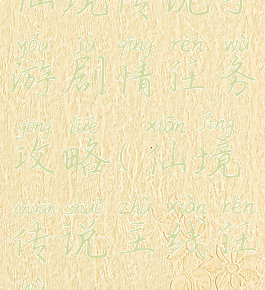 仙境传说手
yóu jù qíng rèn wù
游剧情任务
gōng lüè xiān jìng
攻略(仙境
chuán shuō zhǔ xiàn rèn
传说主线任
wù